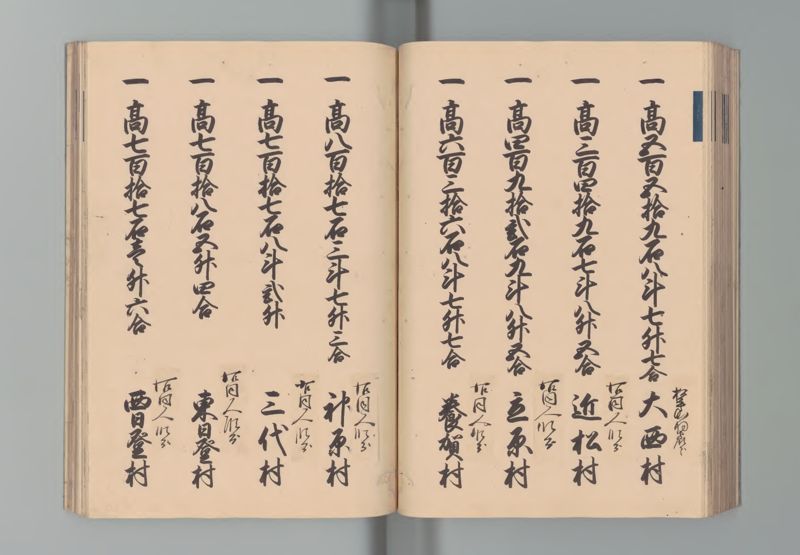 一 高五百五拾九石八斗七升七合 大西村
一 高三百四拾九石七斗八升五合 近松村
一 高四百九拾弐石九斗八升五合 立原村
一 高六百三拾六石八斗七升七合 養賀村
一 高八百拾七石三斗七升三合 神原村
一 高七百拾七石八斗弐升 三代村
一 高七百拾八石五升四合 東日登村
一 高七百拾七石壱升六合 西日登村